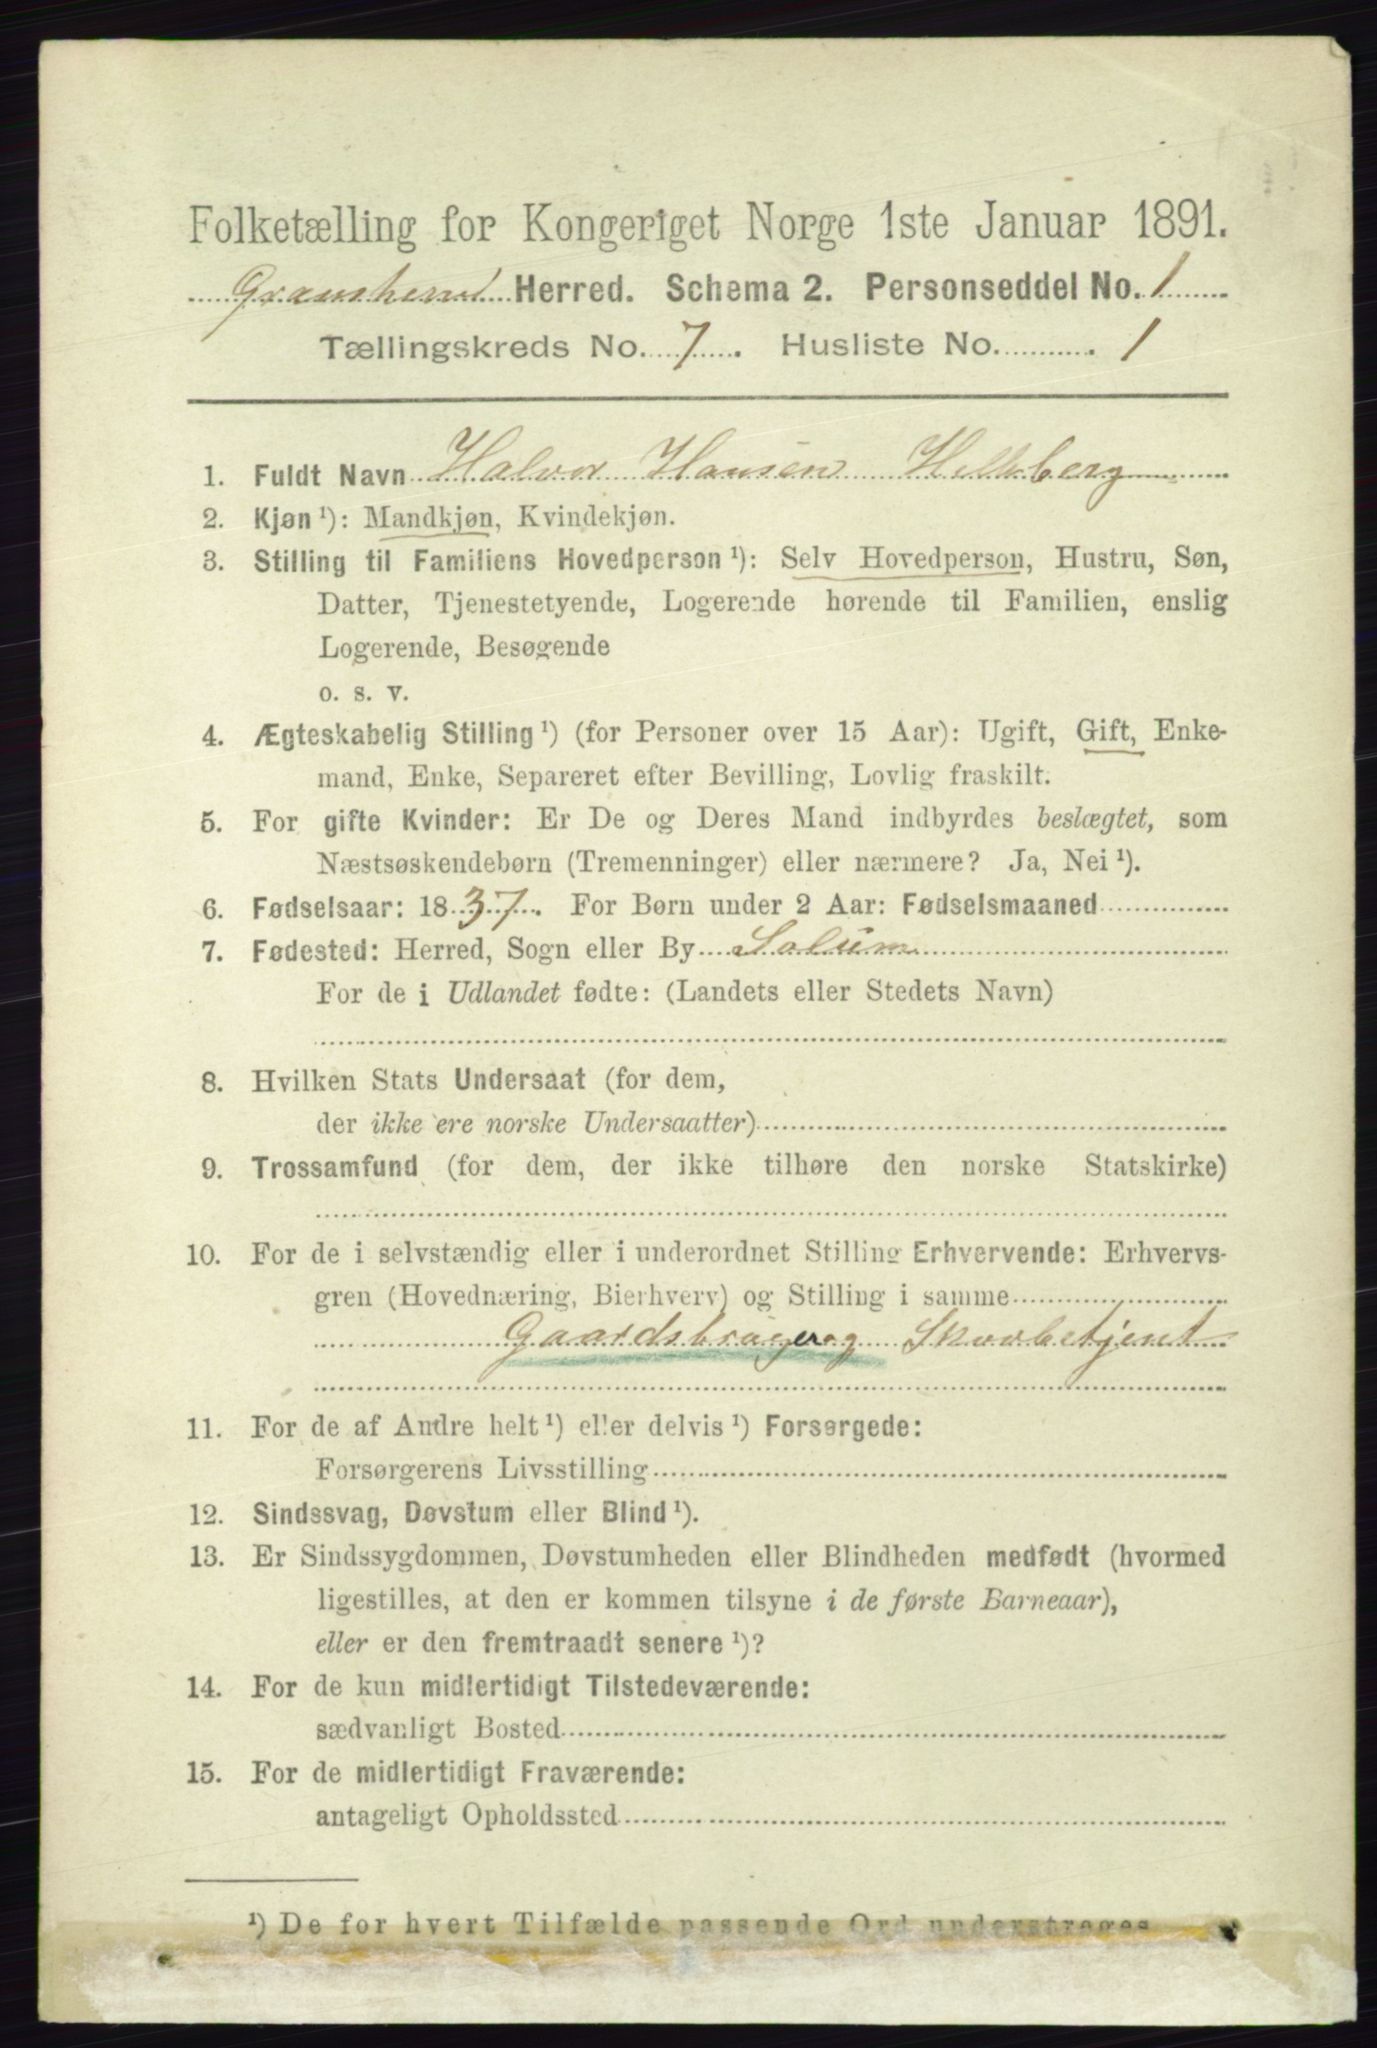 Folketælling for Kongeriget Norge 1ste Januar 1891.
Gransherred Herred. Schema 2. Personseddel No. 1
Tællingskreds No. 7. Husliste No. 1
1. Fuldt Navn Halvor Hansen Hellberg
2. Kjøn ¹): Mandkjøn, Kvindekjøn.
3. Stilling til Familiens Hovedperson ¹): Selv Hovedperson, Hustru, Søn,
Datter, Tjenestetyende, Logerende hørende til Familien, enslig
Logerende, Besøgende
o. s. v.
4. Ægteskabelig Stilling ¹) (for Personer over 15 Aar): Ugift, Gift, Enke-
mand, Enke, Separeret efter Bevilling, Lovlig fraskilt.
5. For gifte Kvinder: Er De og Deres Mand indbyrdes beslægtet, som
Næstsøskendebørn (Tremenninger) eller nærmere? Ja, Nei ¹).
6. Fødselsaar: 1837. For Børn under 2 Aar: Fødselsmaaned
7. Fødested: Herred, Sogn eller By Solum
For de i Udlandet fødte: (Landets eller Stedets Navn)
8. Hvilken Stats Undersaat (for dem,
der ikke ere norske Undersaatter)
9. Trossamfund (for dem, der ikke tilhøre den norske Statskirke)
10. For de i selvstændig eller i underordnet Stilling Erhvervende: Erhvervs-
gren (Hovednæring, Bierhverv) og Stilling i samme
Gaardsbruger og Skovbetjent
11. For de af Andre helt ¹) eller delvis ¹) Forsørgede:
Forsørgerens Livsstilling
12. Sindssvag, Døvstum eller Blind ¹).
13. Er Sindssygdommen, Døvstumheden eller Blindheden medfødt (hvormed
ligestilles, at den er kommen tilsyne i de første Barneaar),
eller er den fremtraadt senere ¹)?
14. For de kun midlertidigt Tilstedeværende:
sædvanligt Bosted
15. For de midlertidigt Fraværende:
antageligt Opholdssted
¹) De for hvert Tilfælde passende Ord understreges